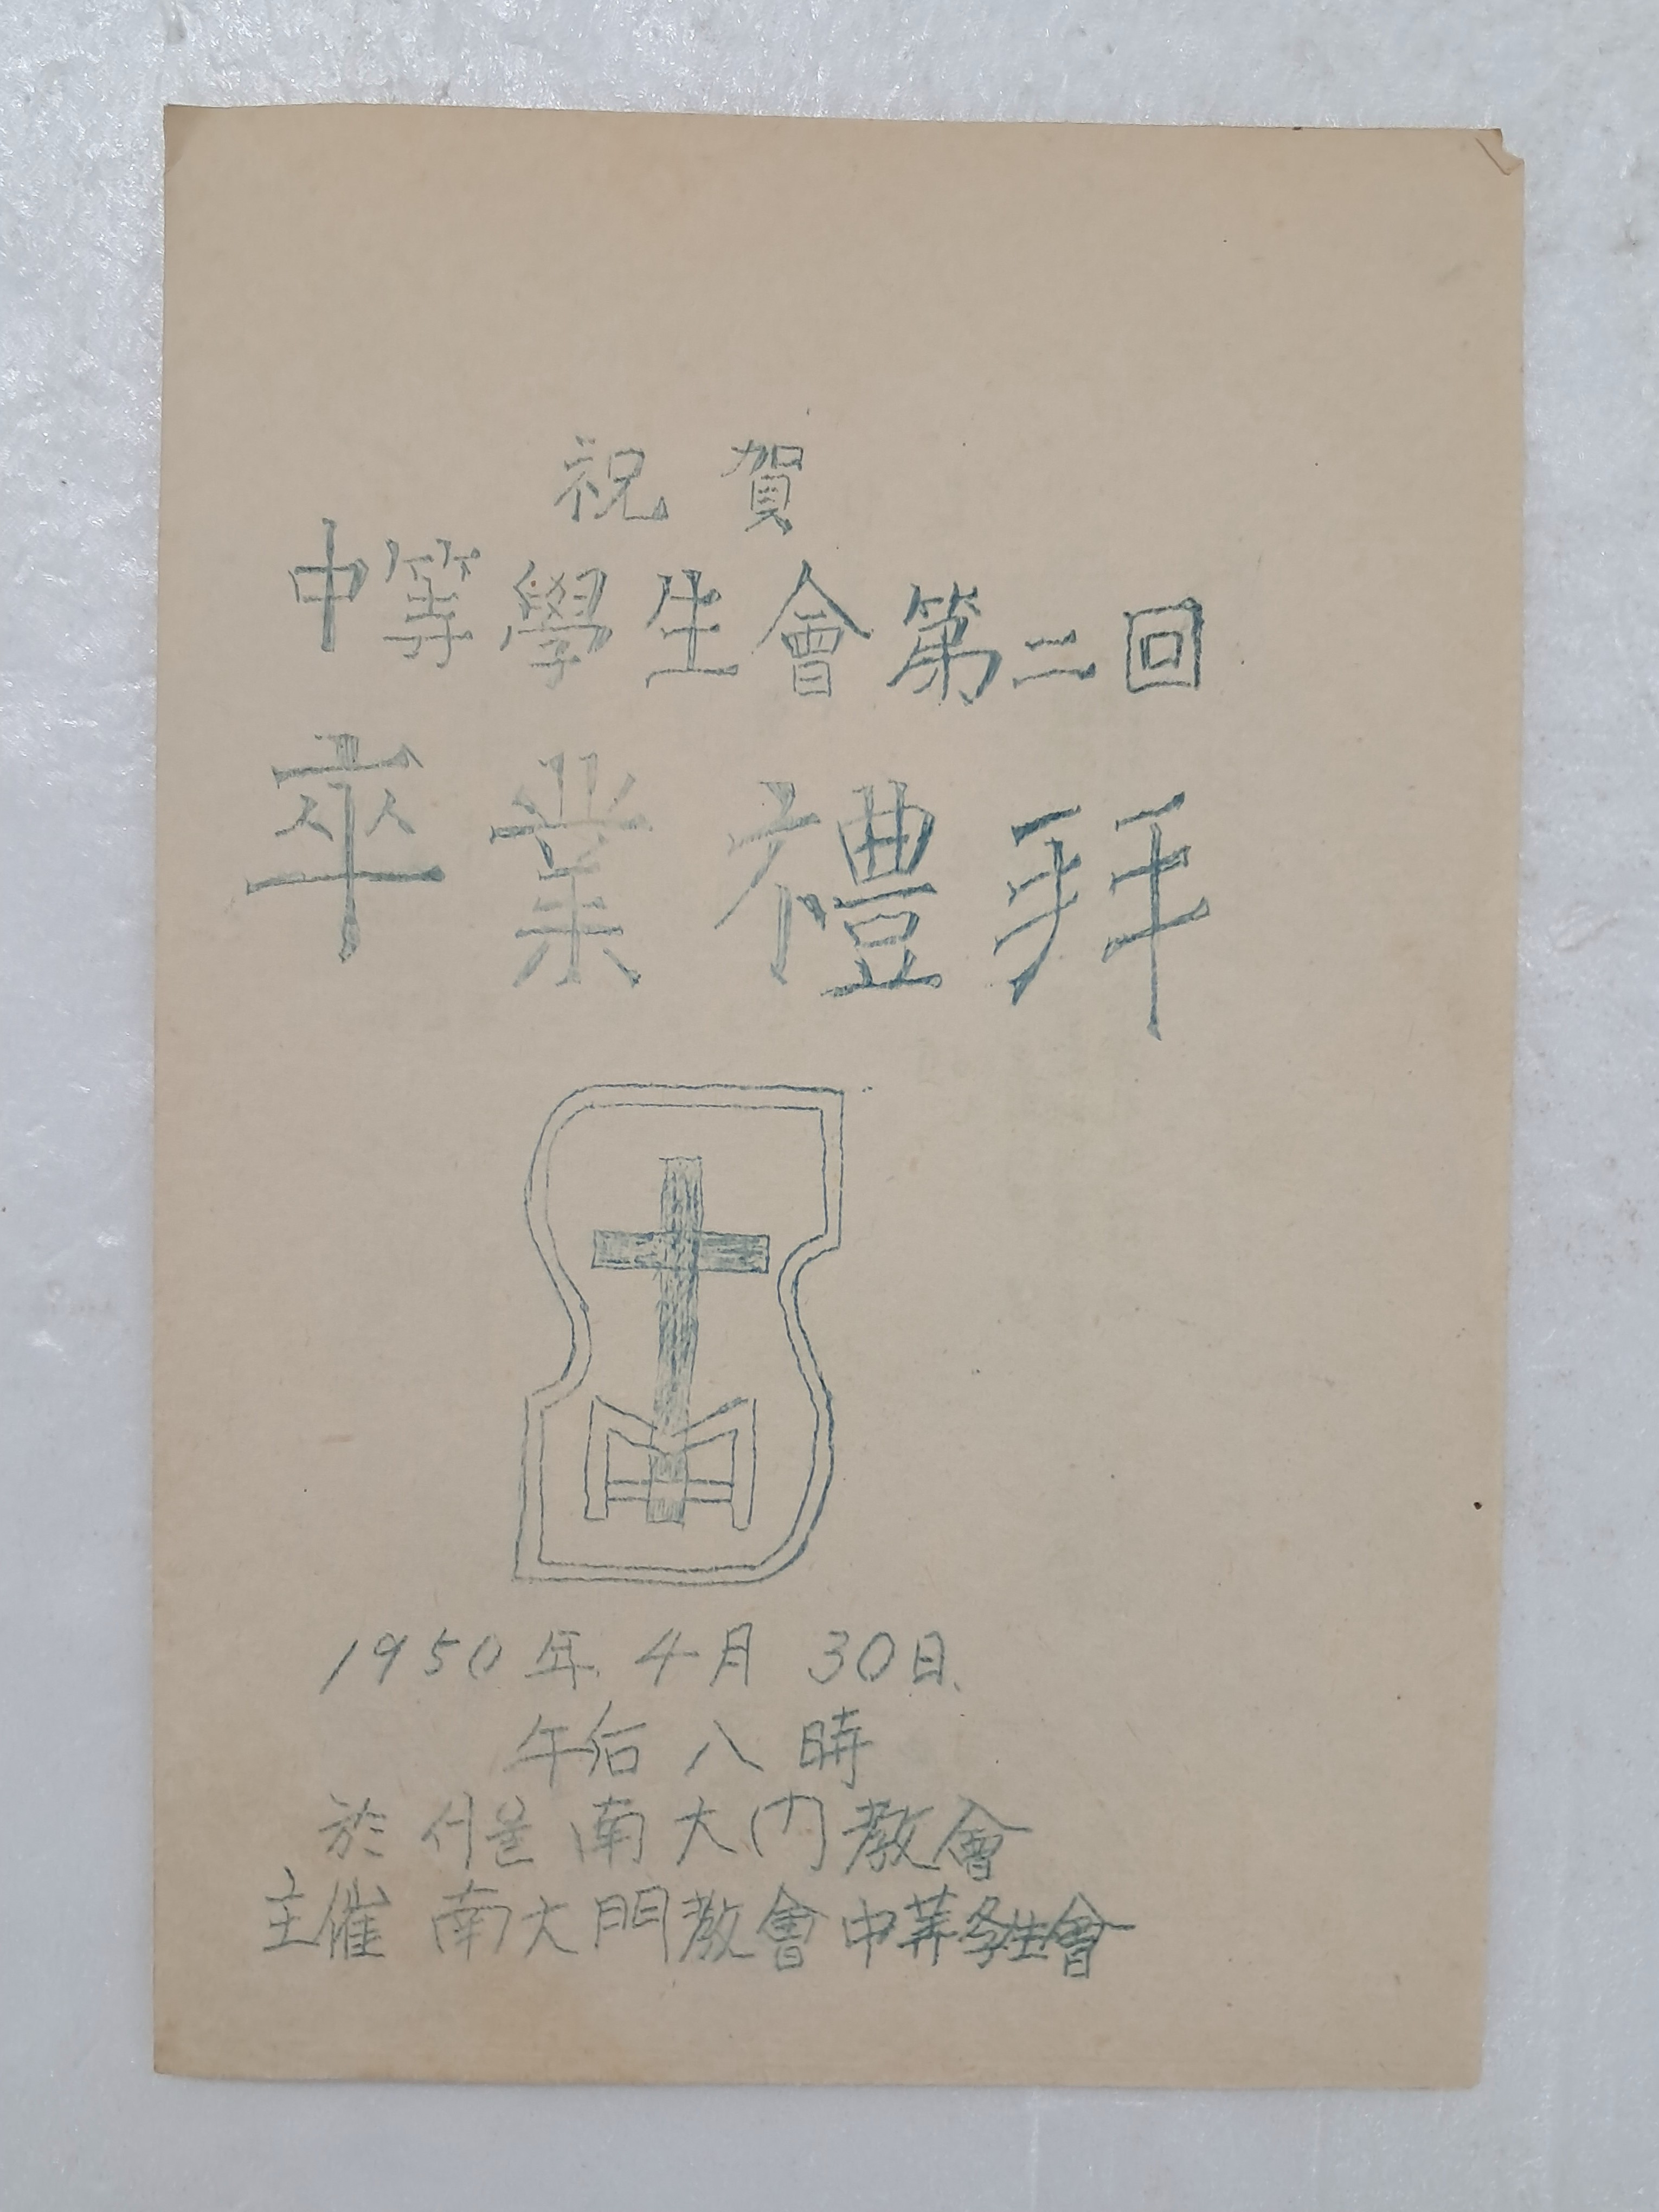 祝賀
中等學生會第二回
卒業禮拜
1950年 4月 30日.
午后 八 時
於 서울 南大门教會
主催 南大門教會 中等学生會